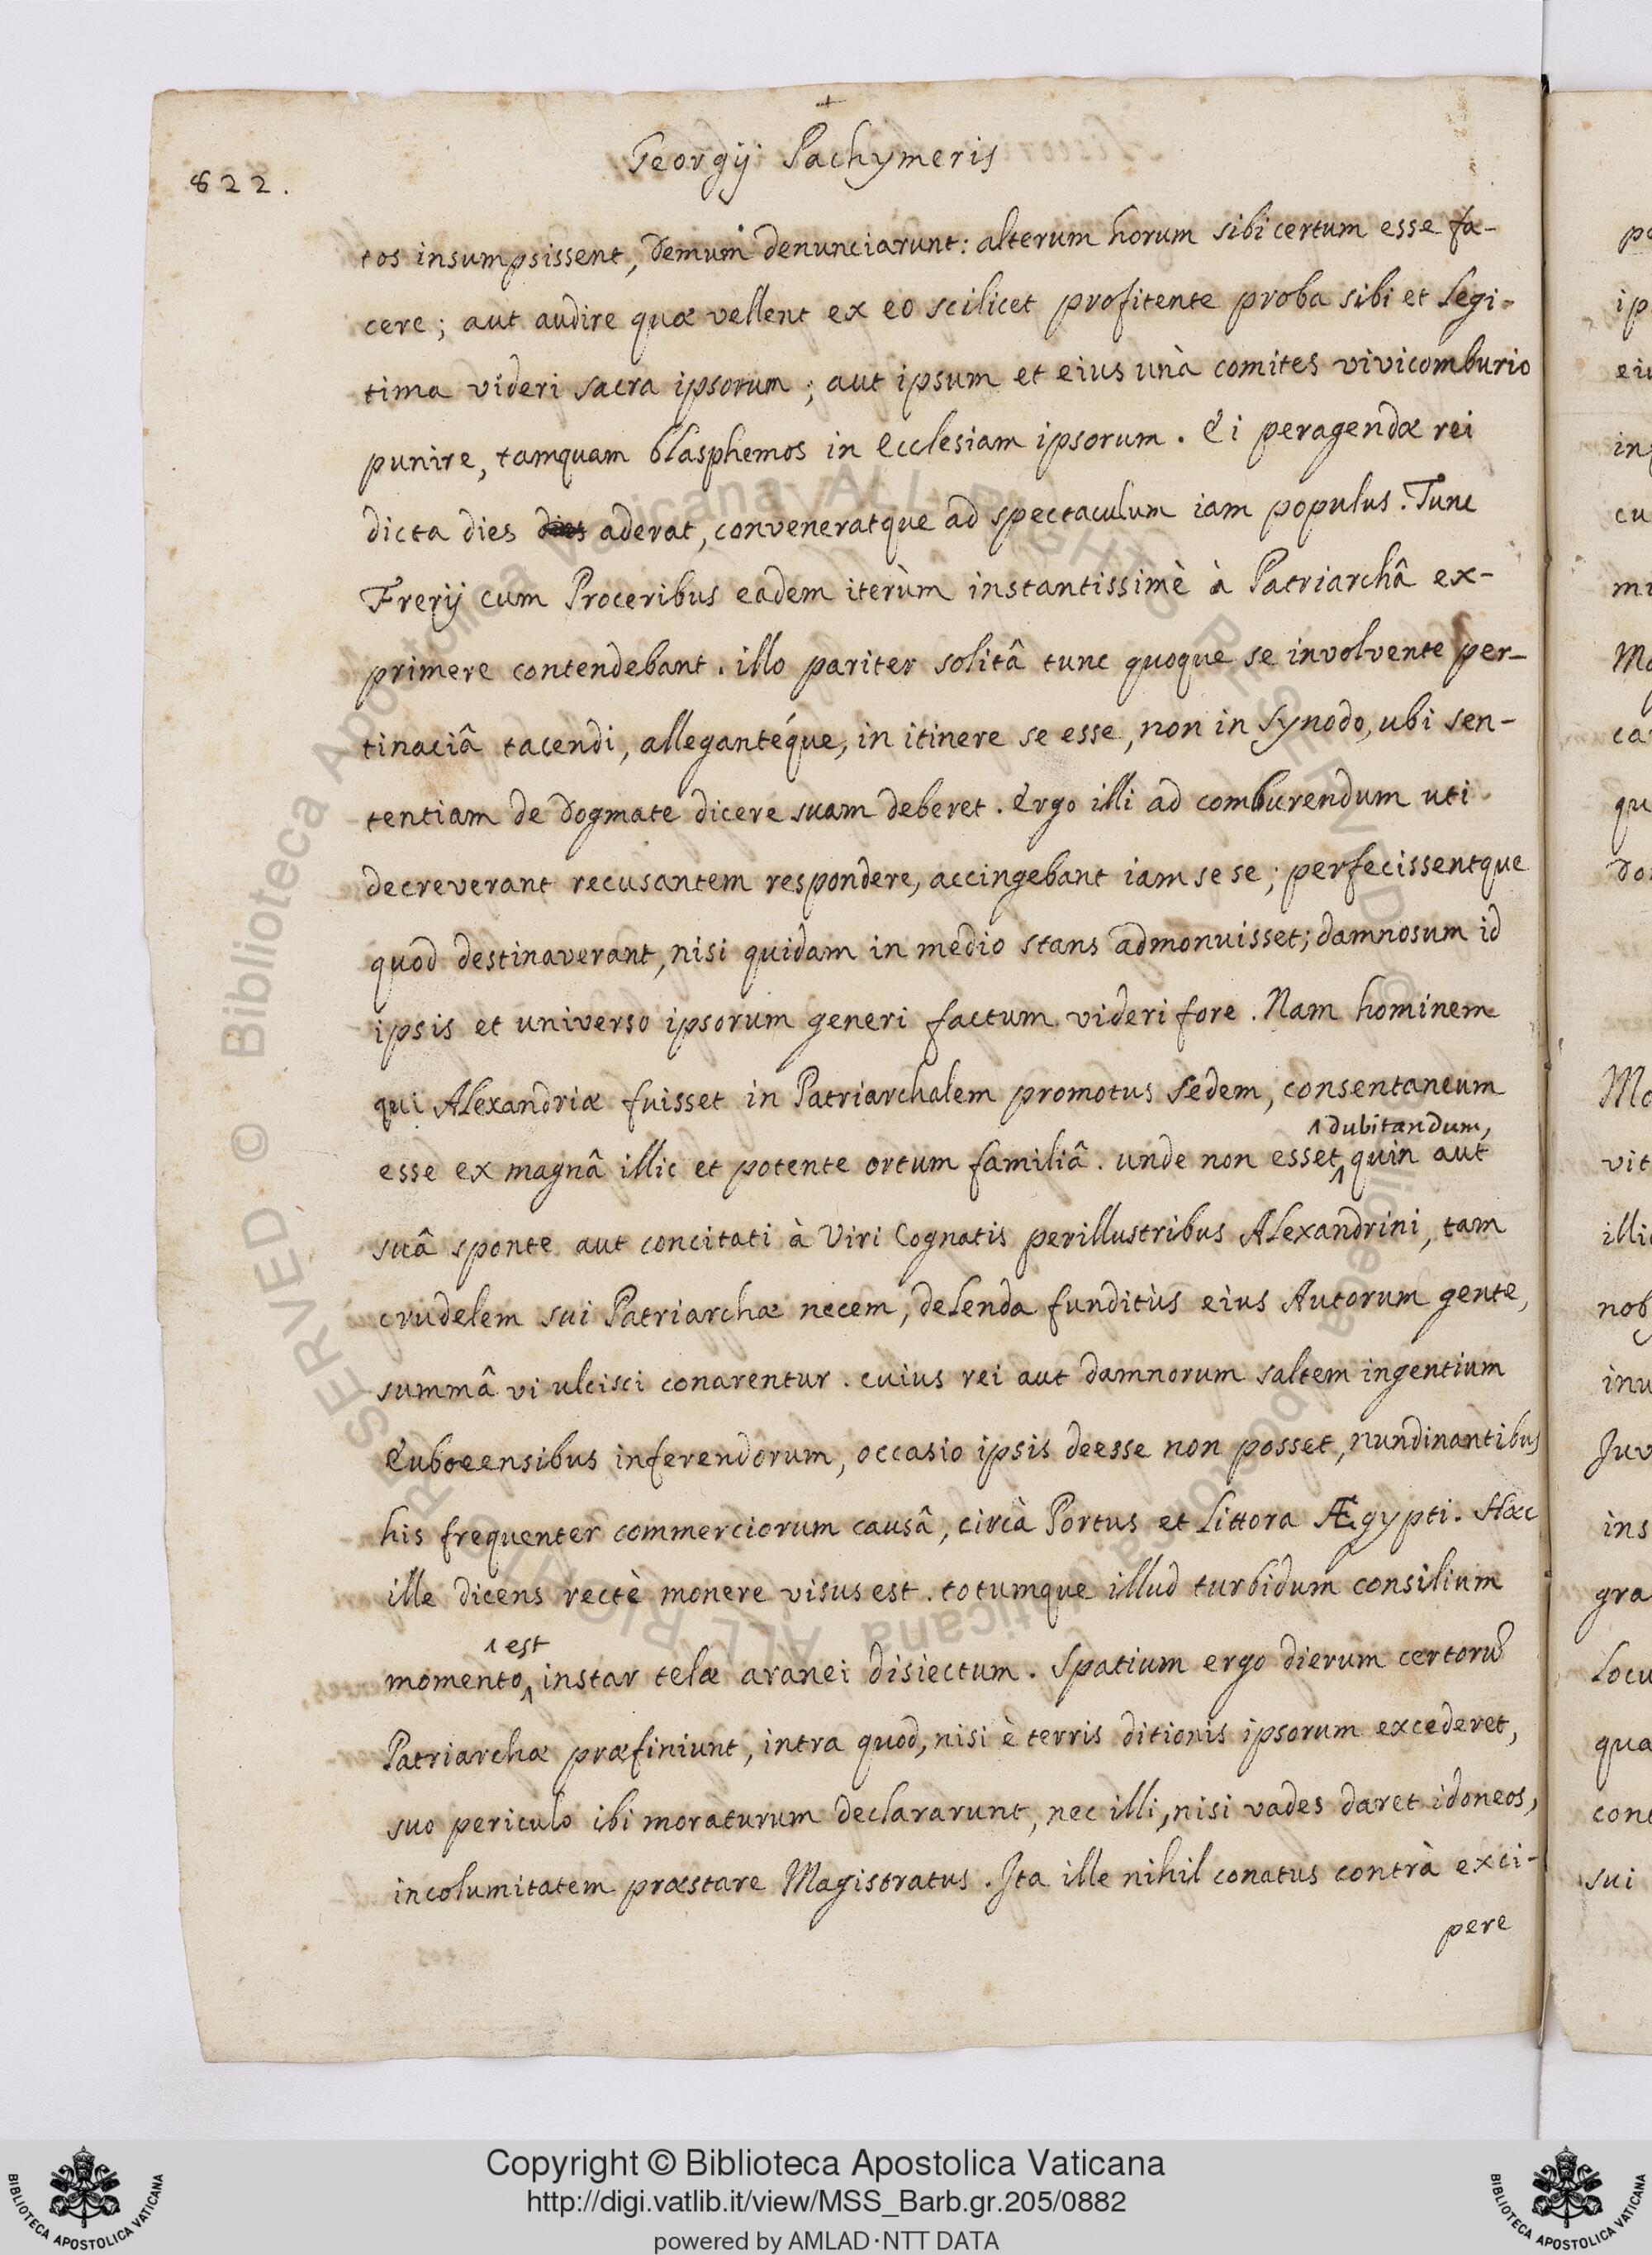 +
Georgij Pachymeris
822.
tos insumpsissent, demum denunciarunt: alterum horum sibi certum esse fa-
cere; aut audire quæ vellent ex eo scilicet profitente proba sibi et legi-
tima videri sacra ipsorum; aut ipsum et eius unà comites vivicomburio
punire, tamquam blasphemos in Ecclesiam ipsorum. Ei peragendæ rei
dicta dies aderat, conveneratque ad spectaculum iam populus. Tunc
Frerij cum Proceribus eadem iterùm instantissimè à Patriarchâ ex-
primere contendebant. illo pariter solitâ tunc quoque se involvente per-
tinaciâ tacendi, allegantéque, in itinere se esse, non in Synodo, ubi sen-
tentiam de Dogmate dicere suam deberet. Ergo illi ad comburendum uti
decreverant recusantem respondere, accingebant iam se se; perfecissentque
quod destinaverant, nisi quidam in medio stans admonuisset; damnosum id
ipsis et universo ipsorum generi factum videri fore. Nam hominem
qui Alexandriæ fuisset in Patriarchalem promotus Sedem, consentaneum
^ dubitandum,
esse ex magnâ illic et potente ortum familiâ. unde non esset ^ quin aut
suâ sponte aut concitati à Viri Cognatis perillustribus Alexandrini, tam
crudelem sui Patriarchæ necem, delenda funditùs eius Autorum gente,
summâ vi ulcisci conarentur. cuius rei aut damnorum saltem ingentium
Euboeensibus inferendorum, occasio ipsis deesse non posset, nundinantibus
his frequenter commerciorum causâ, circà Portus et Littora Ægypti. Hæc
ille dicens rectè monere visus est. totumque illud turbidum consilium
^ est
momento ^ instar telæ aranei disiectum. Spatium ergo dierum certorū
Patriarchæ præfiniunt, intra quod, nisi è terris ditionis ipsorum excederet,
suo periculo ibi moraturum declararunt, nec illi, nisi vades daret idoneos,
incolumitatem præstare Magistratus. Ita ille nihil conatus contrà exci-
pere
Copyright © Biblioteca Apostolica Vaticana
http://digi.vatlib.it/view/MSS_Barb.gr.205/0882
powered by AMLAD·NTT DATA
BIBLIOTECA APOSTOLICA VATICANA
BIBLIOTECA APOSTOLICA VATICANA